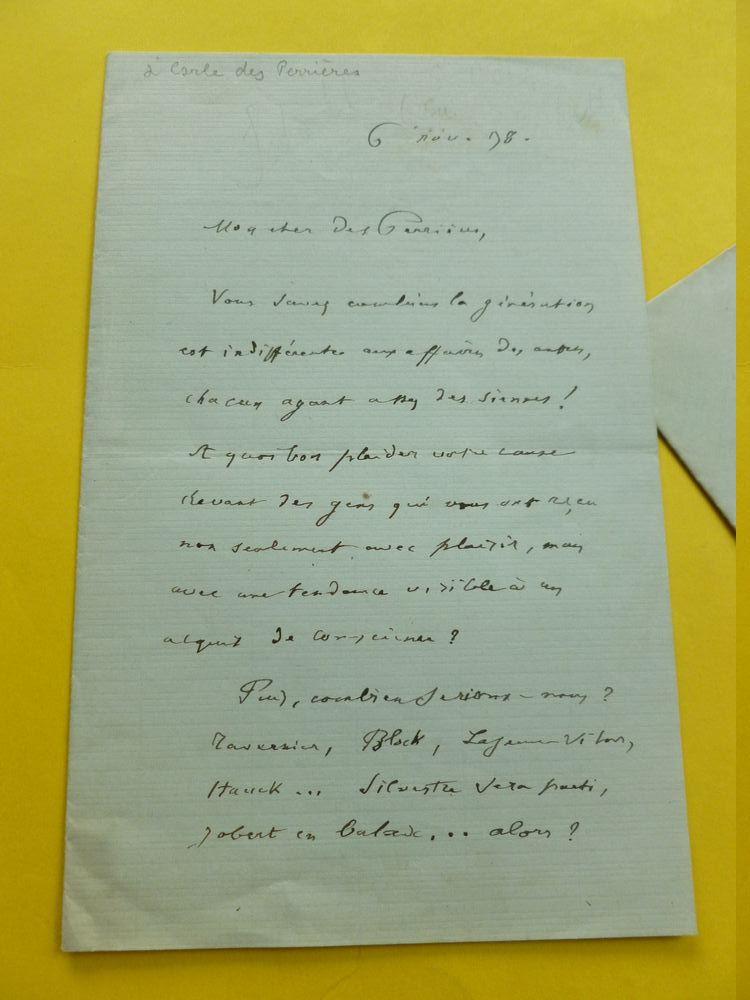 à Carle des Perrières
6 nov. 78.
Mon cher des Perrières,
Vous savez combien la génération
est indifférente aux affaires des autres,
chacun ayant assez des siennes!
A quoi bon plaider votre cause
devant des gens qui vous ont reçu
non seulement avec plaisir, mais
avec une tendance visible à un
acquit de conscience?
Puis, combien serions-nous?
Tavernier, Block, Lafenne
Hauck... Silvestre sera parti,
Jobert en balade... alors?